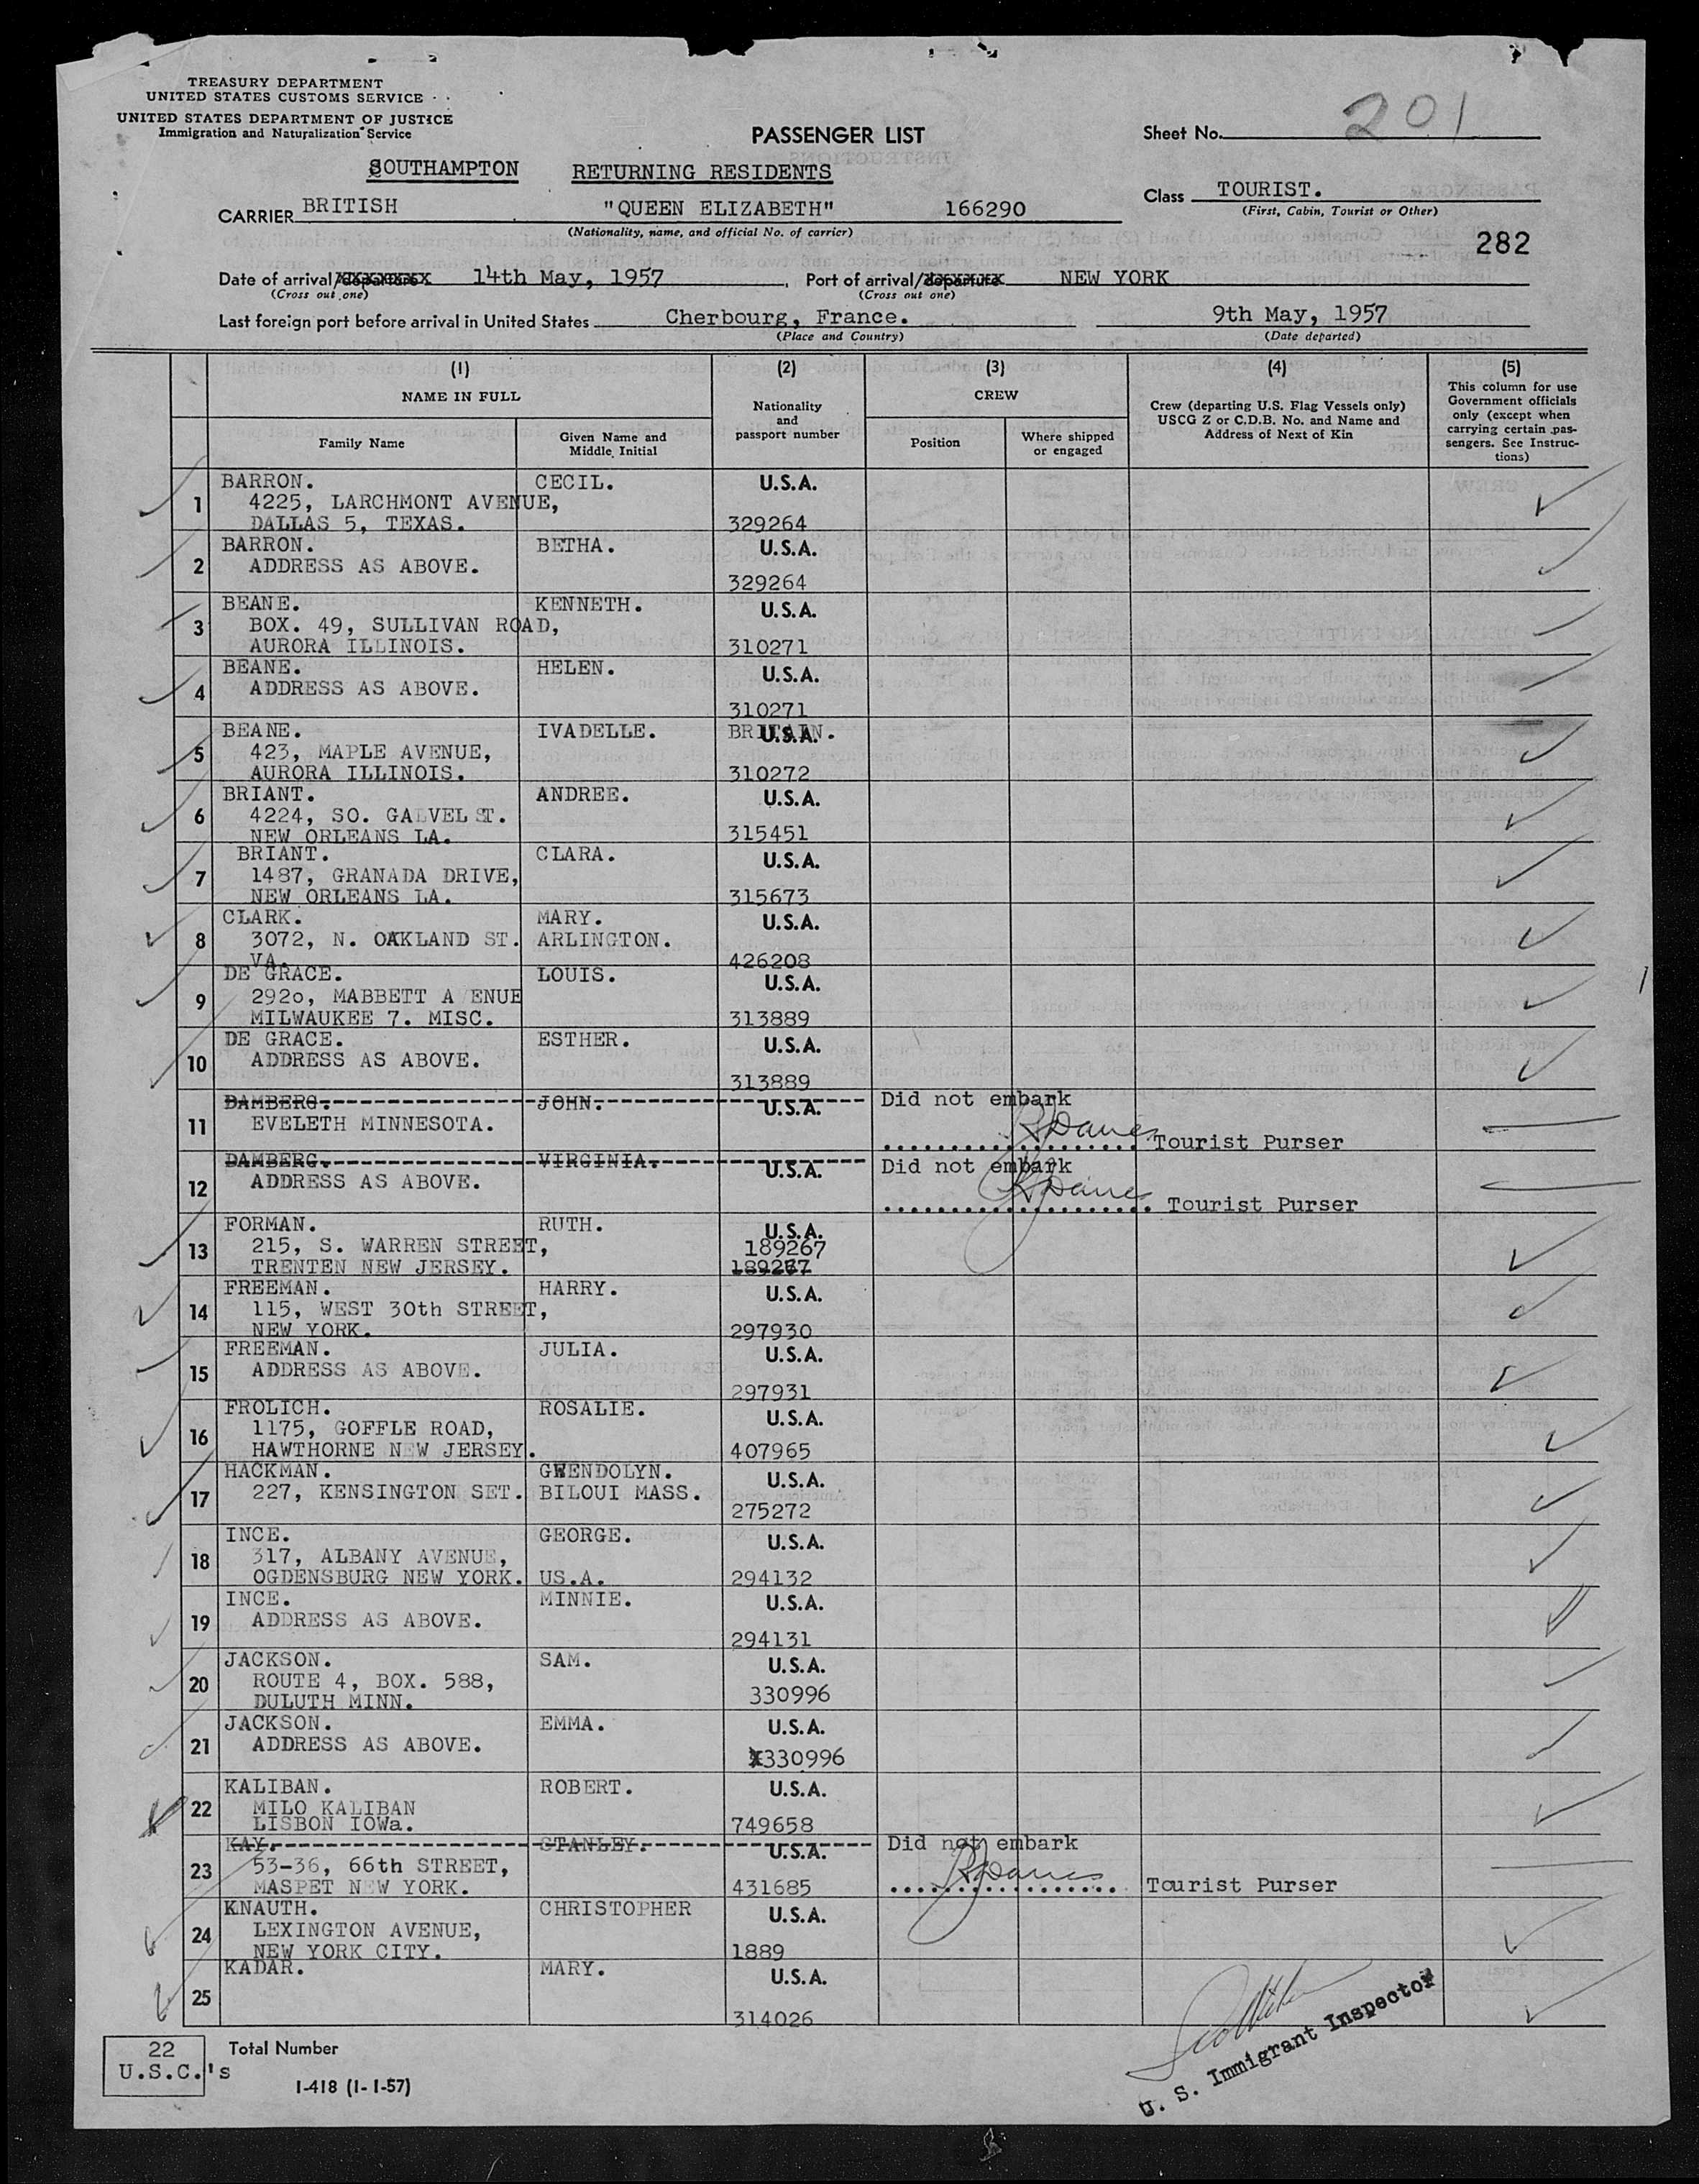 TREASURY DEPARTMENT
UNITED STATES CUSTOMS SERVICE
UNITED STATES DEPARTMENT OF JUSTICE
Immigration and Naturalization Service
PASSENGER LIST
Sheet No. 201
SOUTHAMPTON RETURNING RESIDENTS
Class TOURIST.
(First, Cabin, Tourist or Other)
CARRIER BRITISH "QUEEN ELIZABETH" 166290
(Nationality, name, and official No. of carrier)
282
Date of arrival/departure 14th May, 1957. Port of arrival/departure NEW YORK
(Cross out one) (Cross out one)
Last foreign port before arrival in United States Cherbourg, France. 9th May, 1957
(Place and Country) (Date departed)
(1) (2) (3) (4) (5)
NAME IN FULL
Family Name
Given Name and Middle Initial
Nationality and passport number
CREW
Position
Where shipped or engaged
Crew (departing U.S. Flag Vessels only)
USCG Z or C.D.B. No. and Name and
Address of Next of Kin
This column for use
Government officials
only (except when
carrying certain pas-
sengers. See Instruc-
tions)
1 BARRON. CECIL. U.S.A.
4225, LARCHMONT AVENUE,
DALLAS 5, TEXAS. 329264
2 BARRON. BETHA. U.S.A.
ADDRESS AS ABOVE.
329264
3 BEANE. KENNETH. U.S.A.
BOX. 49, SULLIVAN ROAD,
AURORA ILLINOIS. 310271
4 BEANE. HELEN. U.S.A.
ADDRESS AS ABOVE.
310271
5 BEANE. IVADELLE. BRITAIN. U.S.A.
423, MAPLE AVENUE,
AURORA ILLINOIS. 310272
6 BRIANT. ANDREE. U.S.A.
4224, SO. GALVEL ST.
NEW ORLEANS LA. 315451
7 BRIANT. CLARA. U.S.A.
1487, GRANADA DRIVE,
NEW ORLEANS LA. 315673
8 CLARK. MARY. U.S.A.
3072, N. OAKLAND ST. ARLINGTON.
VA. 426208
9 DE GRACE. LOUIS. U.S.A.
292o, MABBETT A ENUE
MILWAUKEE 7. MISC. 313889
10 DE GRACE. ESTHER. U.S.A.
ADDRESS AS ABOVE.
313889
11 DAMBERG. JOHN. U.S.A. Did not embark
EVELETH MINNESOTA.
Tourist Purser
12 DAMBERG. VIRGINIA. U.S.A. Did not embark
ADDRESS AS ABOVE.
Tourist Purser
13 FORMAN. RUTH. U.S.A.
215, S. WARREN STREET, 189267
TRENTEN NEW JERSEY. 189267
14 FREEMAN. HARRY. U.S.A.
115, WEST 30th STREET,
NEW YORK. 297930
15 FREEMAN. JULIA. U.S.A.
ADDRESS AS ABOVE.
297931
16 FROLICH. ROSALIE. U.S.A.
1175, GOFFLE ROAD,
HAWTHORNE NEW JERSEY. 407965
17 HACKMAN. GWENDOLYN. U.S.A.
227, KENSINGTON SET. BILOUI MASS.
275272
18 INCE. GEORGE. U.S.A.
317, ALBANY AVENUE,
OGDENSBURG NEW YORK. US.A. 294132
19 INCE. MINNIE. U.S.A.
ADDRESS AS ABOVE.
294131
20 JACKSON. SAM. U.S.A.
ROUTE 4, BOX. 588, 330996
DULUTH MINN.
21 JACKSON. EMMA. U.S.A.
ADDRESS AS ABOVE. 330996
22 KALIBAN. ROBERT. U.S.A.
MILO KALIBAN
LISBON IOWa. 749658
23 KAY. STANLEY. U.S.A. Did not embark
53-36, 66th STREET,
MASPET NEW YORK. 431685 Tourist Purser
24 KNAUTH. CHRISTOPHER U.S.A.
LEXINGTON AVENUE,
NEW YORK CITY. 1889
25 KADAR. MARY. U.S.A.
314026
22 Total Number
U.S.C.'s
I-418 (1-1-57)
U. S. Immigrant Inspector